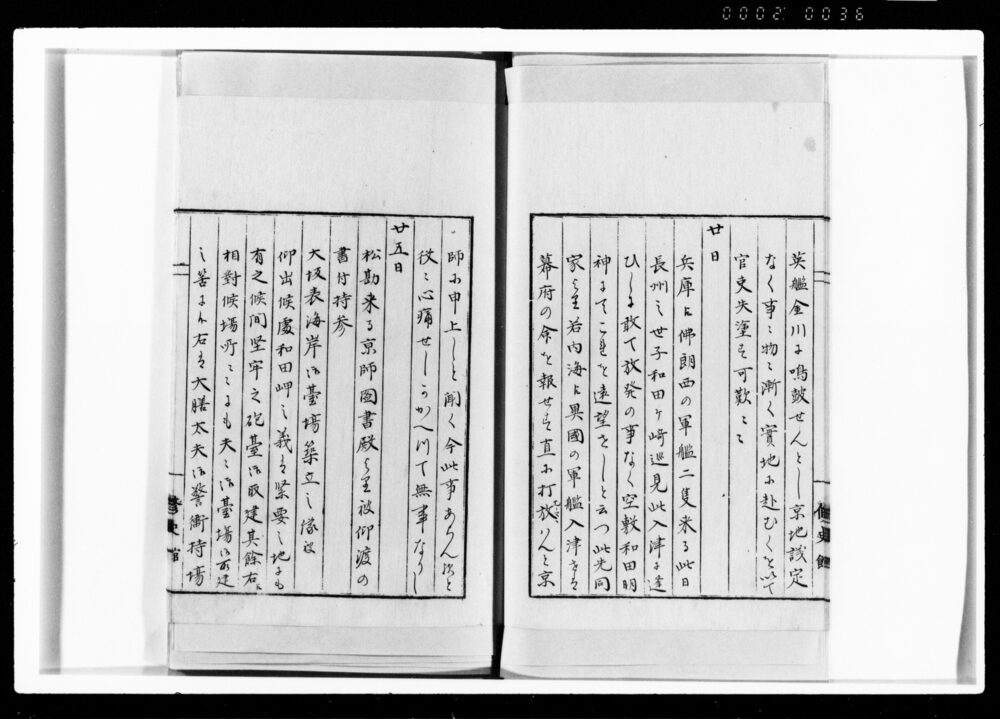 0002 0036
英艦金川ニ鳴皷せんとし京地議定
なく事ニ物ニ漸く實地ニ赴むくを以て
官吏失塗す可歎ニニ
廿日
兵庫ﾖ佛朗西の軍艦二隻来る此日
長州之世子和田ケ崎巡見此入津に達
ひしに敢て放発の事なく空敷和田明
神にてこれを遠望せしと云つ此先同
家より若内海ﾖ異國の軍艦入津せは
幕府の命を報せす直に打放さんと京
師に申上しと聞く今此事あらん
役ニ心痛せしかへつて無事なりし
廿五日
松勘来る京師図書殿より被仰渡の
書付持参
大坂表海岸臺場築立之
仰出候處和田岬之義は緊要之地にも
有之候間堅牢之砲臺取建其餘右
相對候場所ニニにも夫ニ臺場取建
之筈に候右は大膳太夫警衛持場
修史館